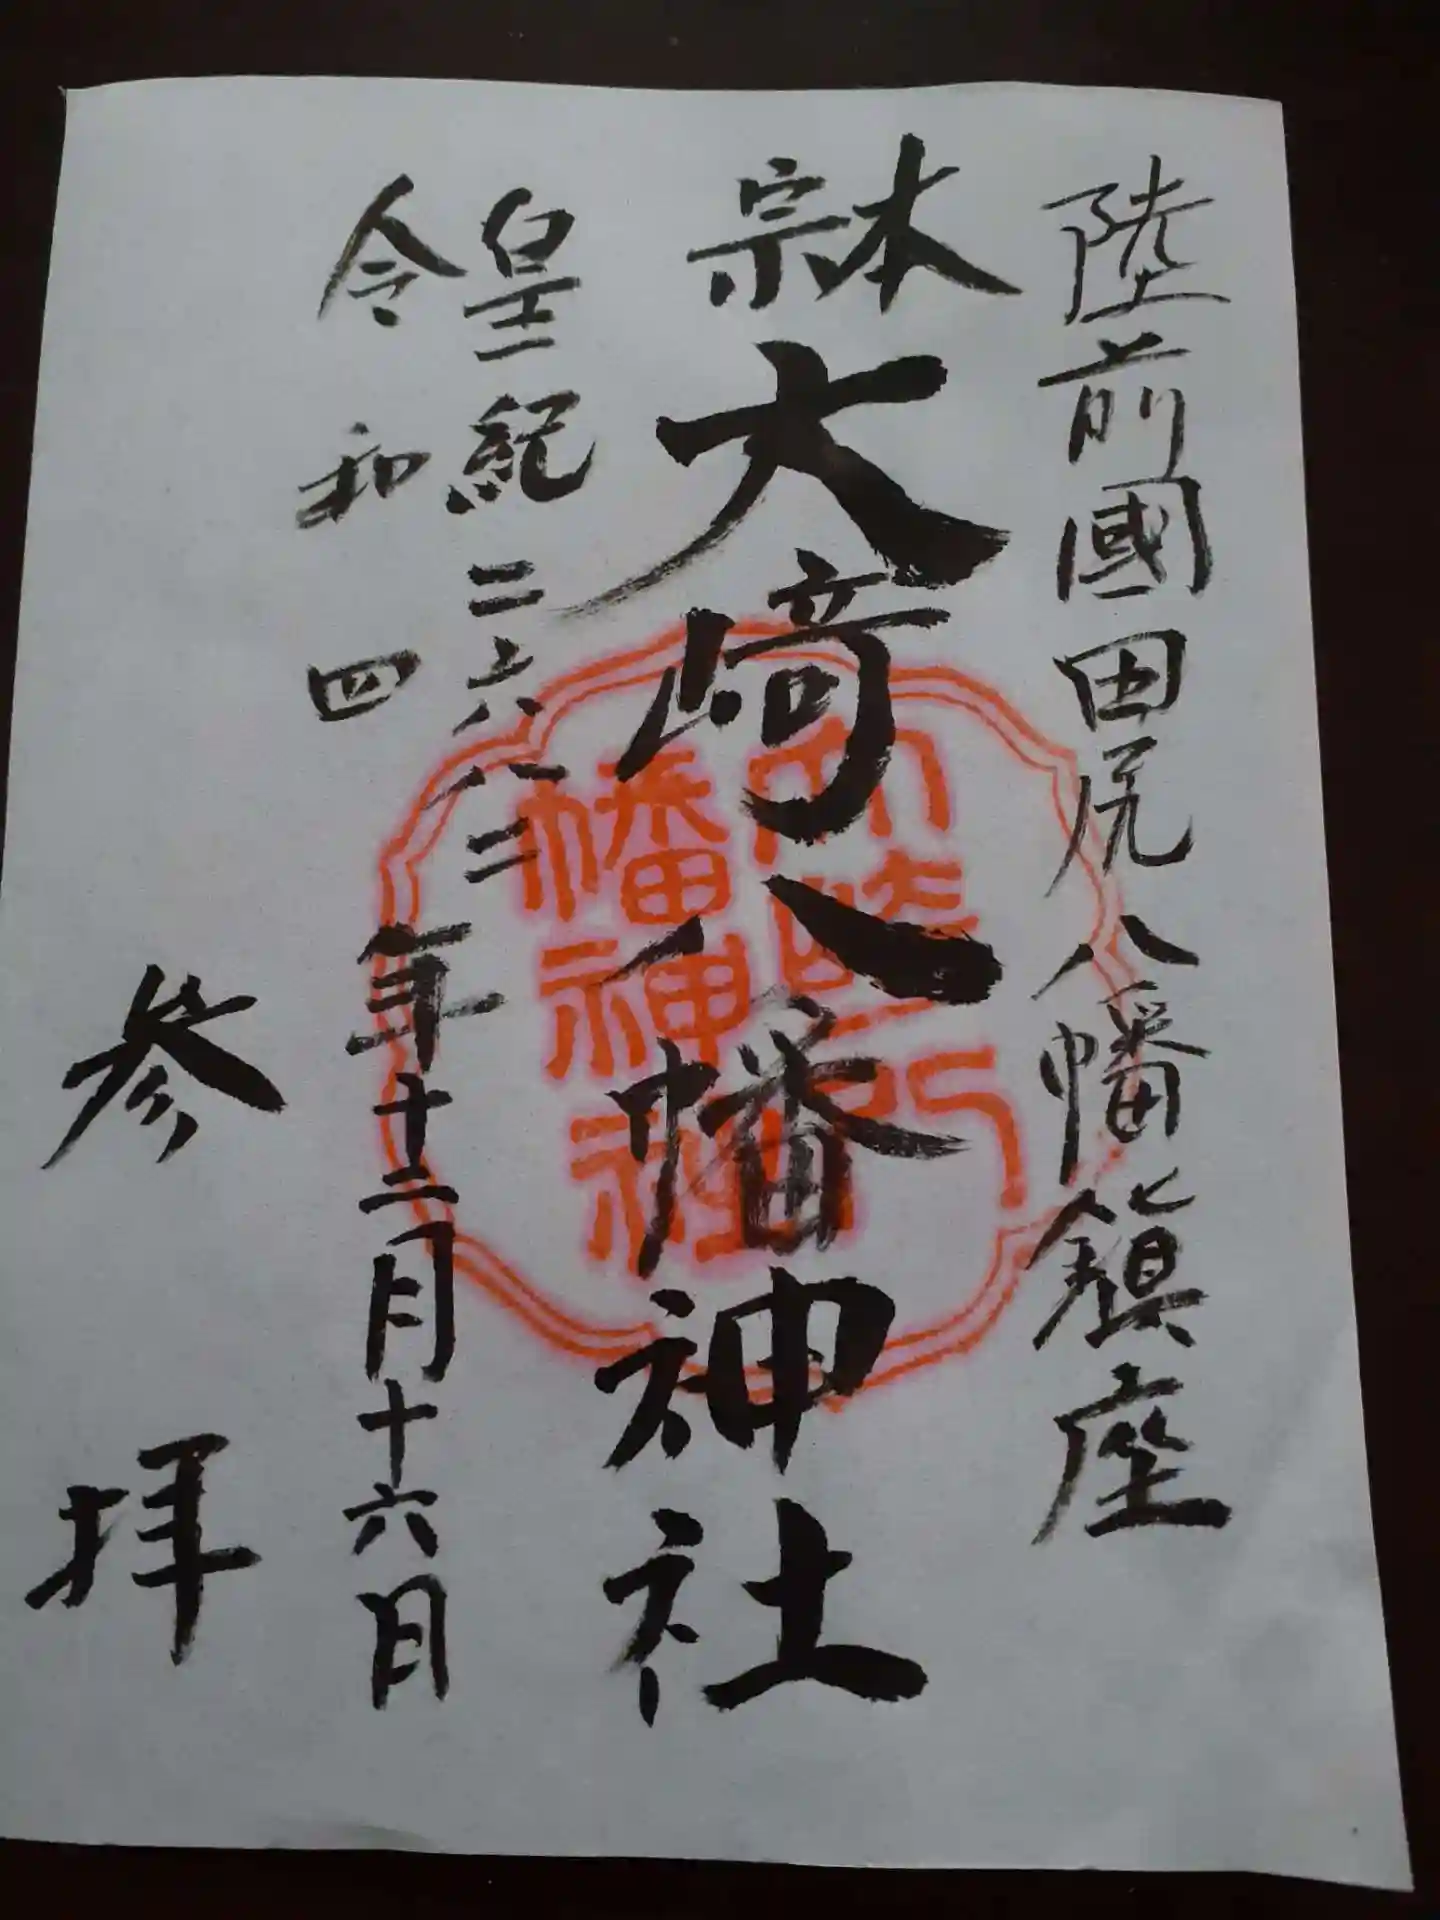 陸前國田尻八幡鎮座
本宗
大﨑八幡神社
皇紀二六八二
令和四
年十二月十六日
参拝
大崎八
幡神社